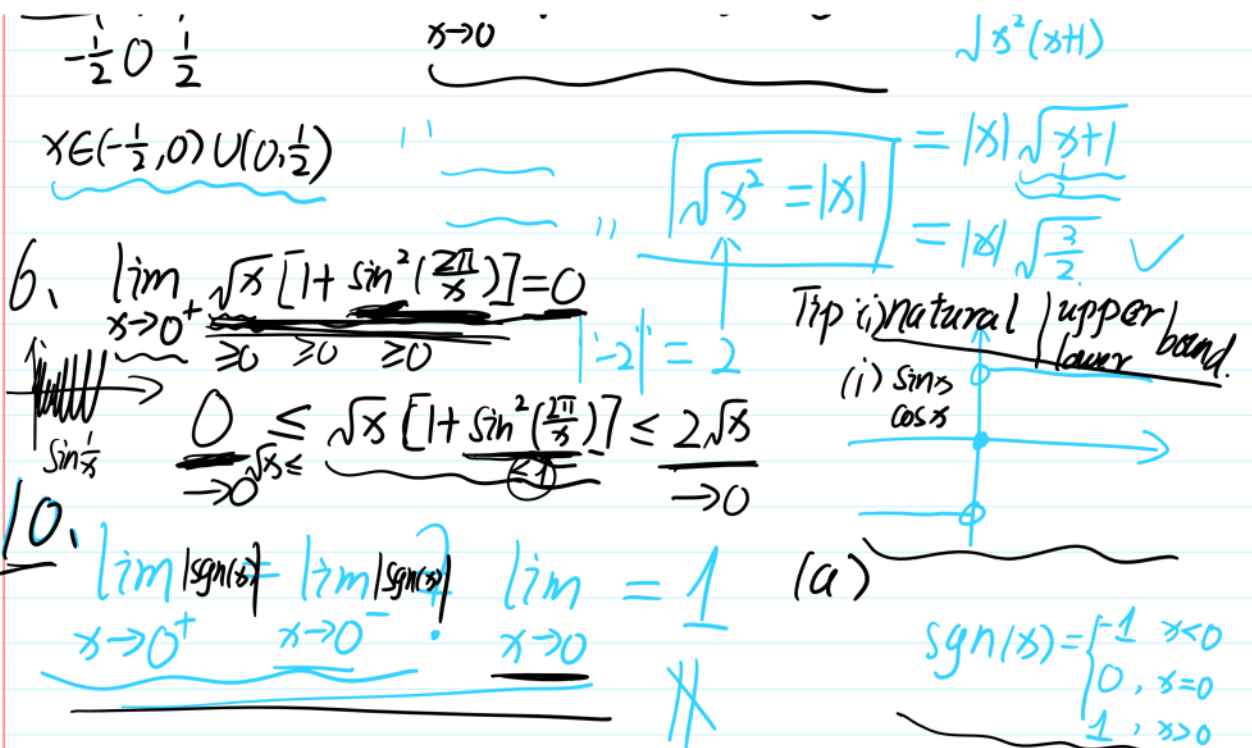 -1/2 0 1/2
x→0
√x²(x+1)
x∈(-1/2,0)∪(0,1/2)
" "
√x² =|x|
= |x|√x+1
= |x|√3/2 ✓
6、 lim x→0⁺ √x [1+ sin²(2π/x)]=0
≥0 ≥0 ≥0
|-2| = 2
Tip (i) natural upper/lower bound.
(i) sinx
cosx
sin 1/x
0 ≤ √x [1+sin²(2π/x)] ≤ 2√x
→0 √x≤ ≤1 →0
10、
lim x→0⁺ |sgn(x)| = lim x→0⁻ |sgn(x)| ? lim x→0 = 1
(a)
sgn(x)={-1 x<0
0, x=0
1, x>0